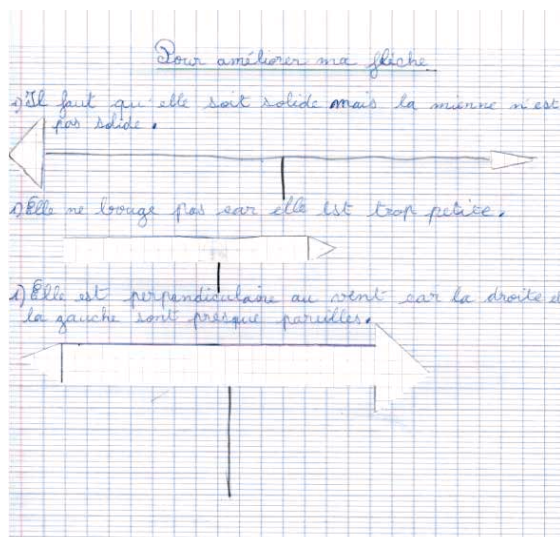 Pour améliorer ma flèche
1) Il faut qu'elle soit solide mais la mienne n'est
pas solide.
1) Elle ne bouge pas car elle est trop petite.
1) Elle est perpendiculaire au vent car la droite et
la gauche sont presque pareilles.